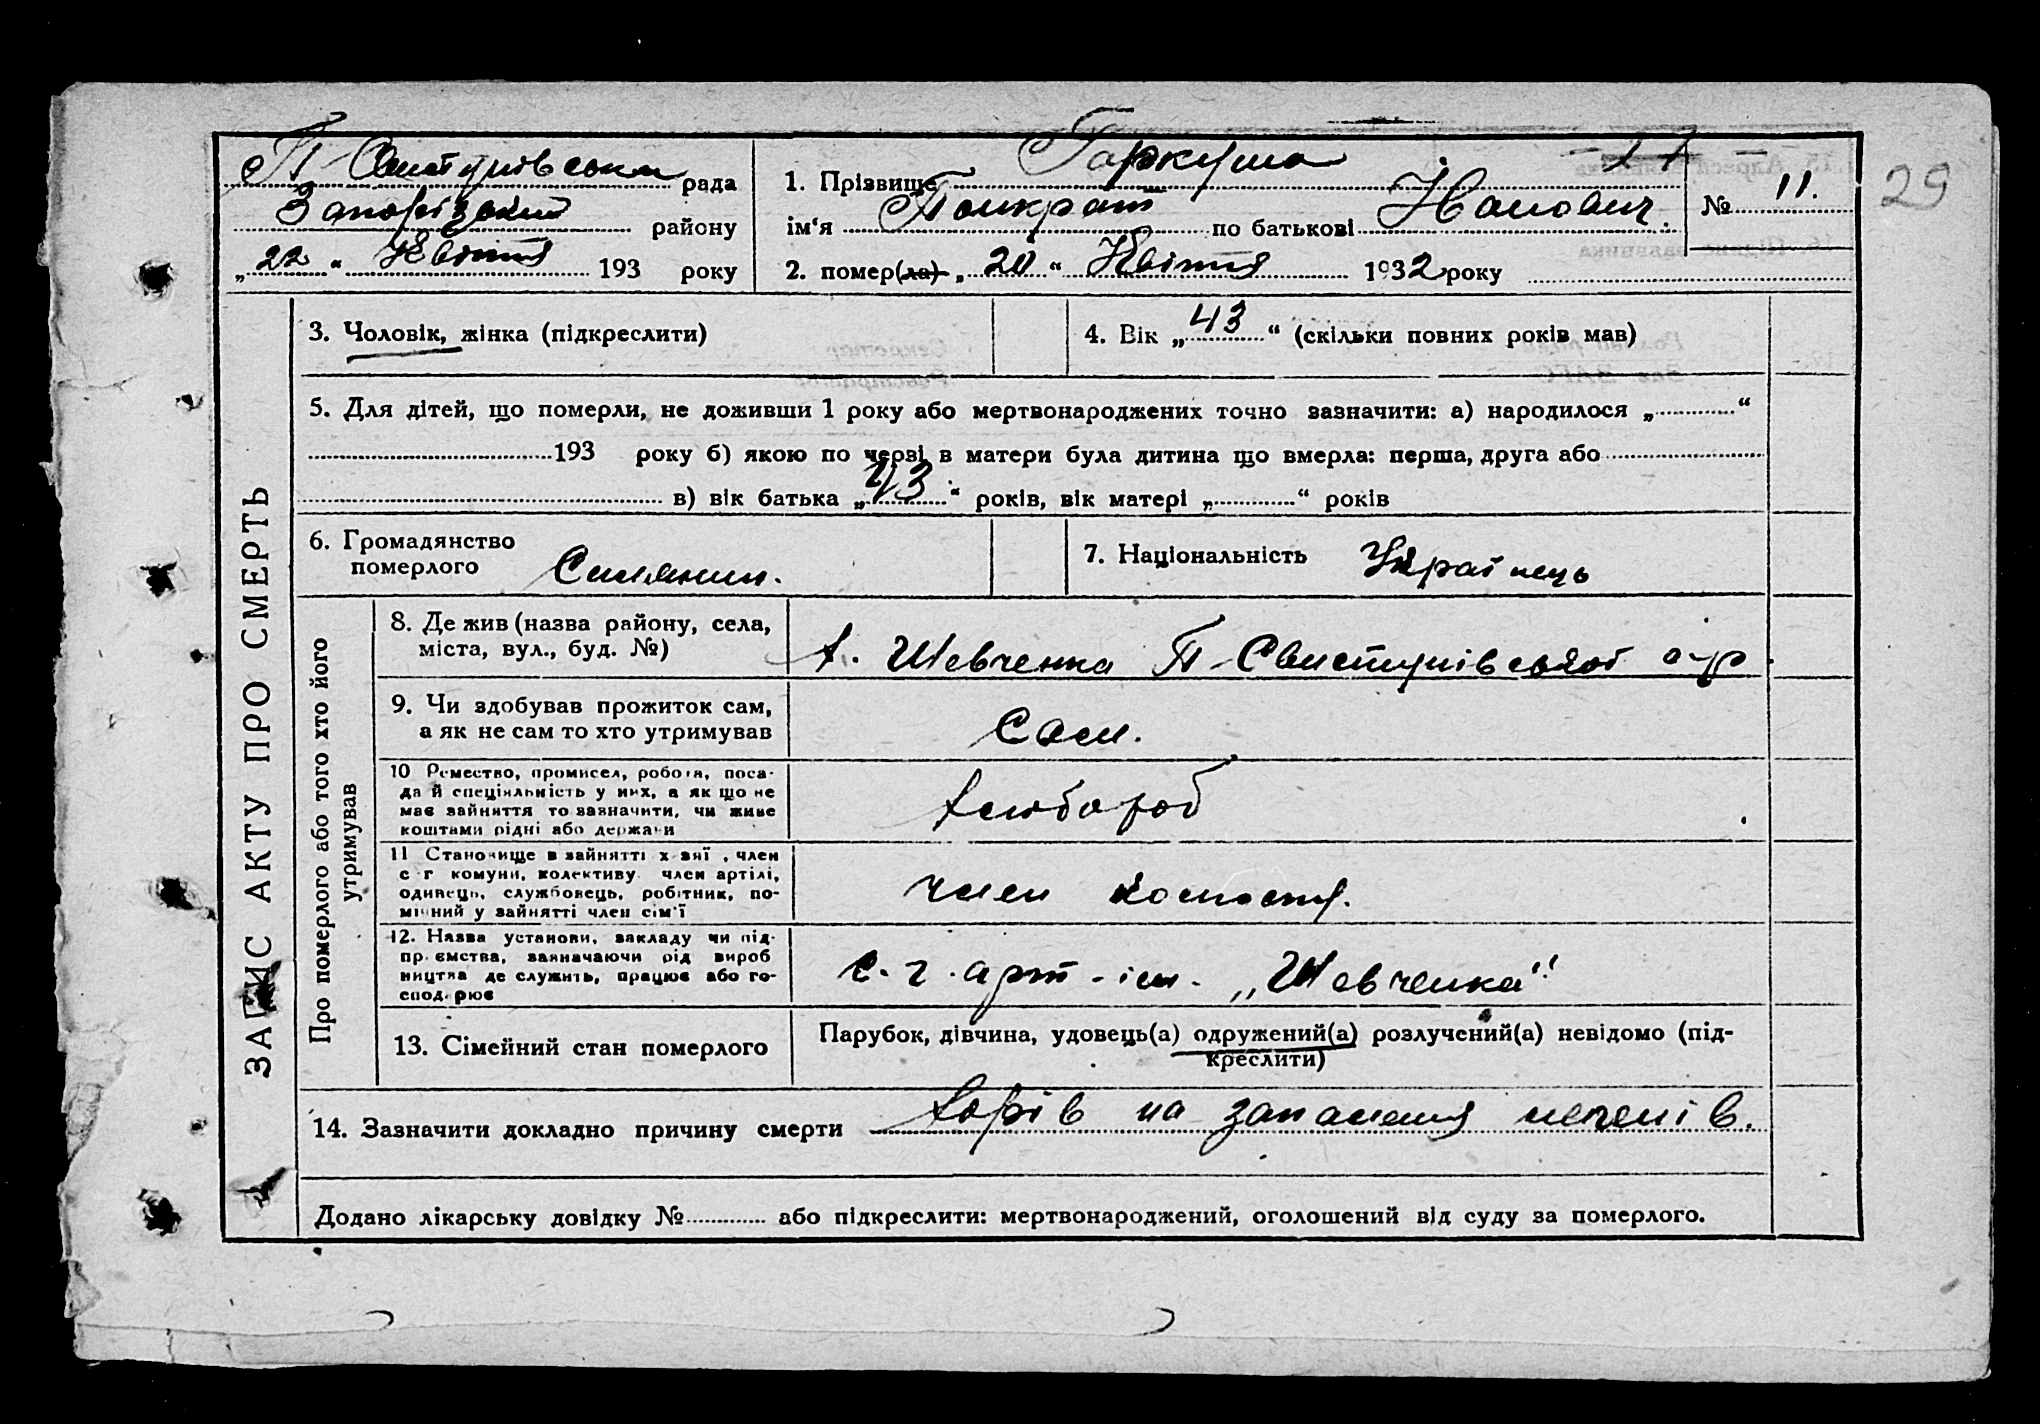 П-Свистунівська рада
Запорізький району
„22“ Квітня 193 року
1. Прізвище Гаркуша
ім‘я Панкрат по батькові Іванович.
2. помер(ла) „20“ Квітня 1932 року
17
№ 11.
29
ЗАПИС АКТУ ПРО СМЕРТЬ
3. Чоловік, жінка (підкреслити)
4. Вік „43“ (скільки повних років мав)
5. Для дітей, що померли, не доживши 1 року або мертвонароджених точно зазначити: а) народилося „ “
193 року б) якою по черзі в матери була дитина що вмерла: перша, друга або
в) вік батька „43“ років, вік матері „ “ років
6. Громадянство
померлого Силянин.
7. Національність Українець
Про померлого або того хто його
утримував
8. Де жив (назва району, села,
міста, вул., буд. №)
х. Шевченка П-Свистунівської с-р.
9. Чи здобував прожиток сам,
а як не сам то хто утримував
Сам.
10 Ремество, промисел, робота, поса-
да й спеціяльність у них, а як що не
має зайняття то зазначити, чи живе
коштами рідні або держави
хлібороб
11 Становище в зайнятті х-зяї , член
с г комуни, колективу член артілі,
одинець, службовець, робітник, по-
мічний у зайнятті член сім‘ї
член
12. Назва установи, закладу чи під-
пр ємства, зазначаючи рід вироб
ництва де служить, працює або го-
сподарює
с. г. арт-ім. „Шевченка“
13. Сімейний стан померлого
Парубок, дівчина, удовець(а) одружений(а) розлучений(а) невідомо (під-
креслити)
14. Зазначити докладно причину смерти хорів на запалення
Додано лікарську довідку № або підкреслити: мертвонароджений, оголошений від суду за померлого.